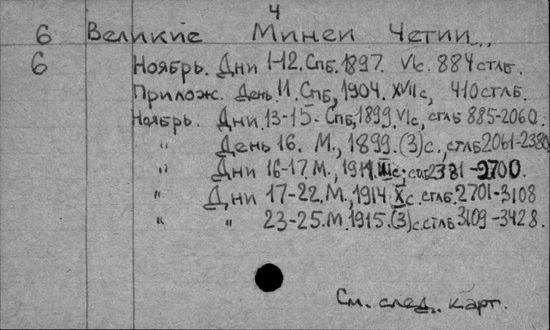 4
6 Великие Минеи Четии,,
6 Ноябрь. Дни 1-12. Спб. 1897. VIс. 884 стлб.
Прилож. День 11. Спб, 1904. XVII с, 410 стлб.
Ноябрь. Дни 13-15. Спб, 1899. VIс, стлб 885-2060.
" День 16. М., 1899. (3)с., стлб 2061-2380
" Дни 16-17. М., 1911. IIIс. стлб 2381-2700.
" Дни 17-22. М., 1914 Xс. стлб. 2701-3108
" " 23-25. М. 1915. (3)с. стлб 3109-3428.
См. след. карт.